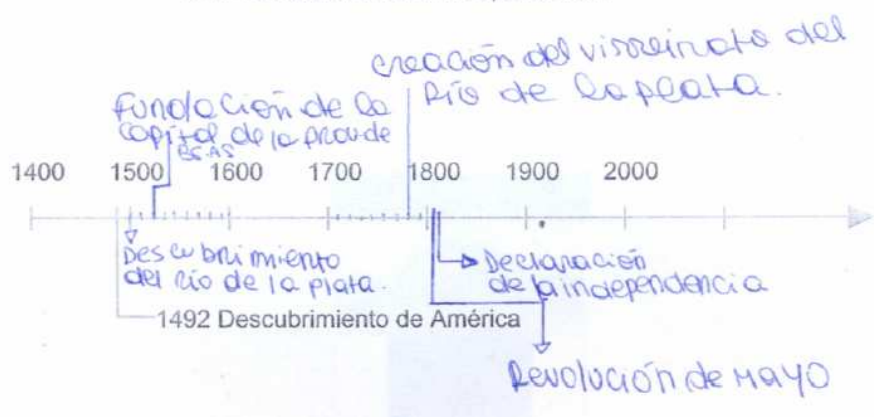 creación del virreinato del
Río de la plata.
Fundación de la
capital de la prov de
BS.AS
1400 1500 1600 1700 1800 1900 2000
Descubrimiento
del río de la plata.
Declaración
de la independencia
1492 Descubrimiento de América
Revolución de MAYO